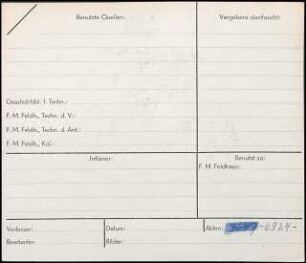 Benutzte Quellen:
Vergebens durchsucht:
Geschichtsbl. f. Techn.:
F. M. Feldh., Techn. d. V.:
F. M. Feldh., Techn. d. Ant.:
F. M. Feldh., Kal.:
Irrtümer:
Benutzt zu:
F. M. Feldhaus:
Verfasser:
Datum:
Akten:
-6824-
Bearbeiter:
Bilder: